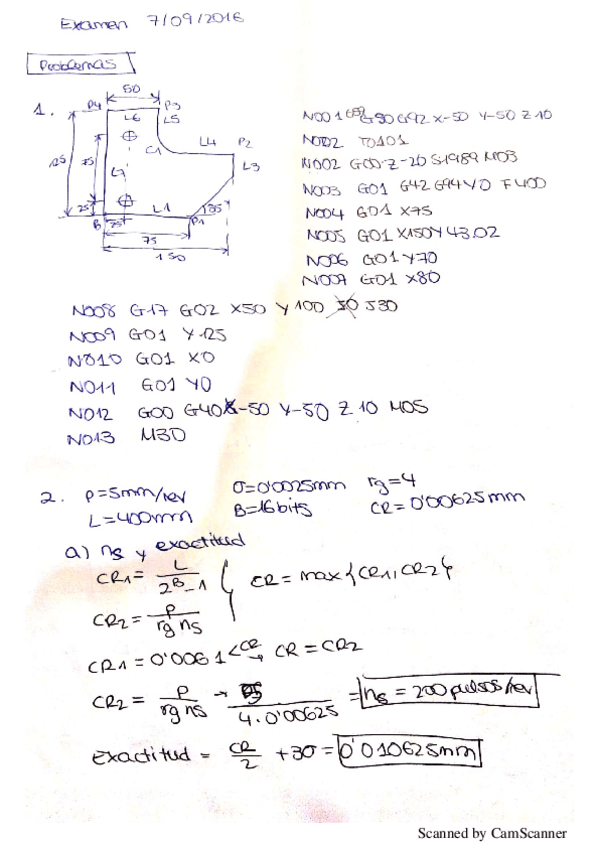 Examen 7/09/2016
Problemas
1.
50
P4
P3
L6
L5
C1
L4
P2
L3
125
75
L7
25
L1
135º
B
25
P1
75
150
N001 G90 G92 X-50 Y-50 Z10
N002 T0101
N002 G00 Z-20 S1989 M03
N003 G01 G42 G94 Y0 F400
N004 G01 X75
N005 G01 X150 Y43.02
N006 G01 Y70
N007 G01 X80
N008 G17 G02 X50 Y100 J30
N009 G01 Y125
N010 G01 X0
N011 G01 Y0
N012 G00 G40 X-50 Y-50 Z10 M05
N013 M30
2. p=5mm/rev σ=0'0025mm rg=4
L=400mm B=16bits CR=0'00625mm
a) ns y exactitud
CR1 = L / 2^B-1
CR = max{CR1, CR2}
CR2 = p / rg ns
CR1 = 0'0061 < CR → CR = CR2
CR2 = p / rg ns → 5 / 4·0'00625 = ns = 200 pulsos/rev
exactitud = CR/2 + 3σ = 0'010625mm
Scanned by CamScanner